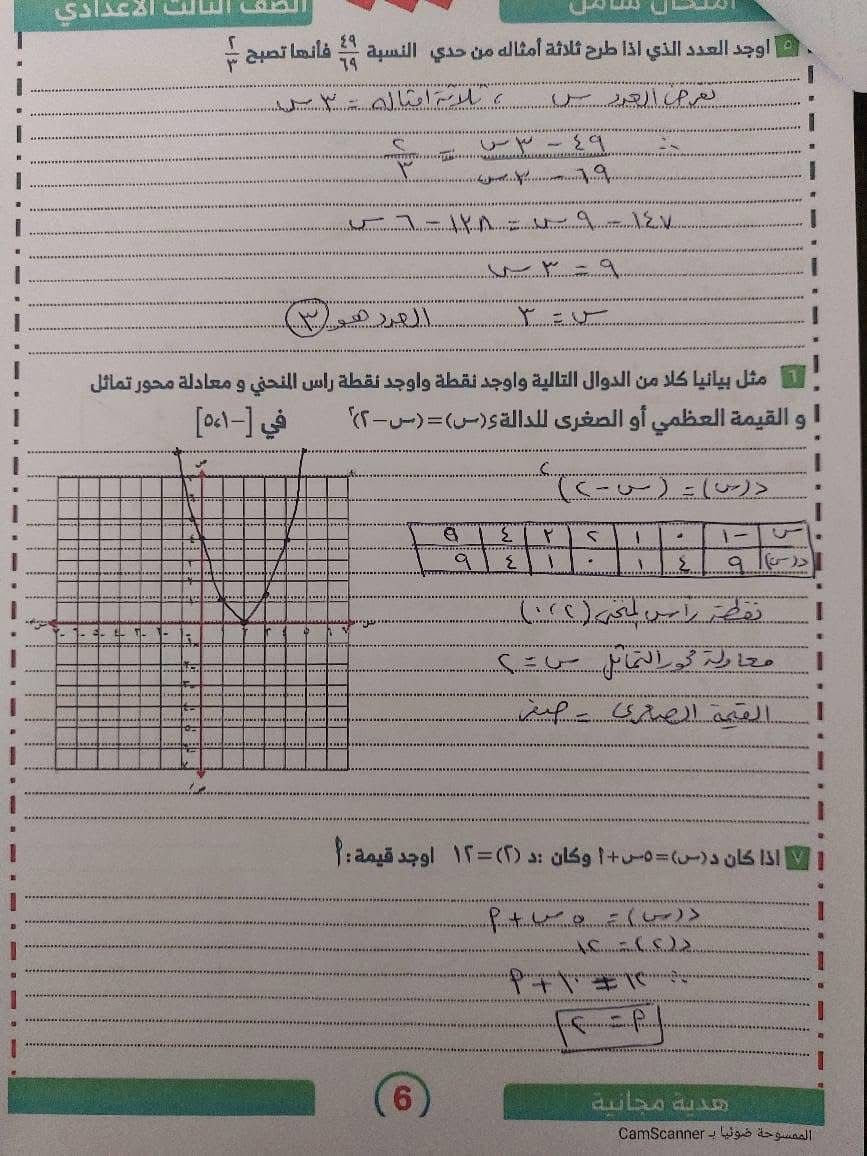 امتحان شامل
الصف الثالث الاعدادي
٥ اوجد العدد الذي اذا طرح ثلاثة أمثاله من حدي النسبة ٤٩/٦٩ فأنها تصبح ٢/٣
نفرض العدد س ، ثلاثة امثاله = ٣ س
∴ (٤٩ - ٣ س)/(٦٩ - ٣ س) = ٢/٣
١٤٧ - ٩ س = ١٣٨ - ٦ س
٩ = ٣ س
س = ٣ العدد هو ٣
٦ مثل بيانيا كلا من الدوال التالية واوجد نقطة واوجد نقطة راس المنحني و معادلة محور تماثل
و القيمة العظمي أو الصغرى للدالة د(س)=(س-٢)² في [-٥،١]
د(س) = (س - ٢)²
س -١ ٠ ١ ٢ ٣ ٤ ٥
د(س) ٩ ٤ ١ ٠ ١ ٤ ٩
نقطة رأس المنحنى (٢ ، ٠)
معادلة محور التماثل س = ٢
القيمة الصغرى = صفر
٧ اذا كان د(س)=٥س+أ وكان :د (٢)=١٢ اوجد قيمة: أ
د(س) = ٥ س + أ
د(٢) = ١٢
∴ ١٢ = ١٠ + أ
أ = ٢
6
هدية مجانية
الممسوحة ضوئيا بـ CamScanner